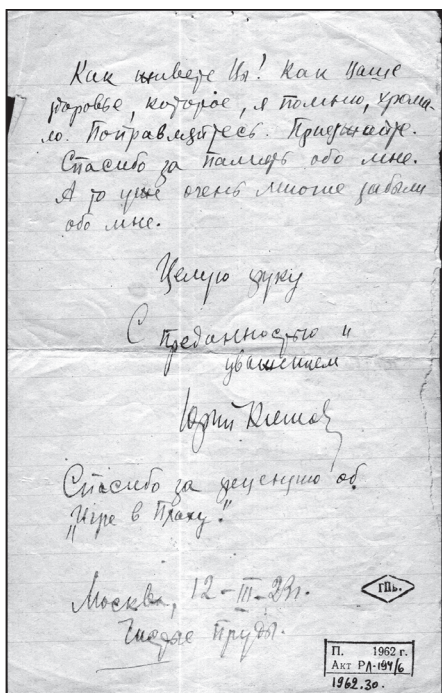 Как живете Вы? Как Ваше
здоровье, которое, я помню, хрома-
ло. Поправляйтесь. Приезжайте.
Спасибо за память обо мне.
А то уже очень многие забыли
обо мне.
Целую руку
С преданностью и
уважением
Юрий
Спасибо за рецензию об
"Игре в Плаху."
Москва, 12-III-23г.
Чистые Пруды.
ГПБ.
П. 1962 г.
Акт РЛ-194/6
1962.30.